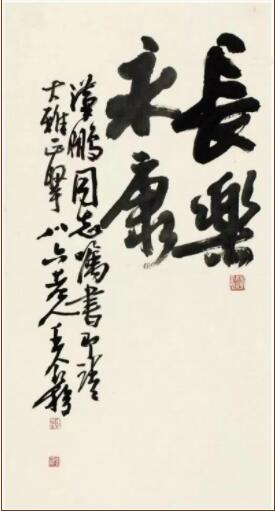 長樂
永康
漢鵬同志嘱書即請
大雅正 八六老人王个簃